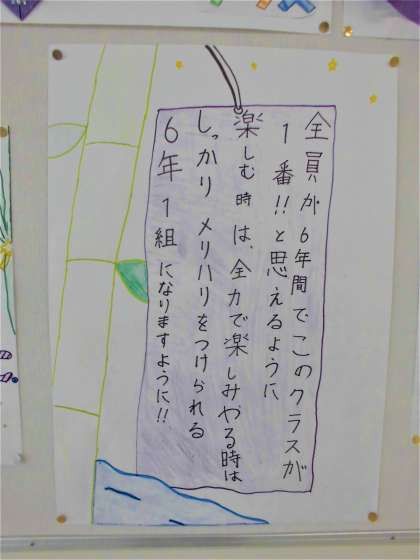 全員が6年間でこのクラスが
1番!!と思えるように
楽しむ時は、全力で楽しみやる時は
しっかりメリハリをつけられる
6年1組になりますように!!